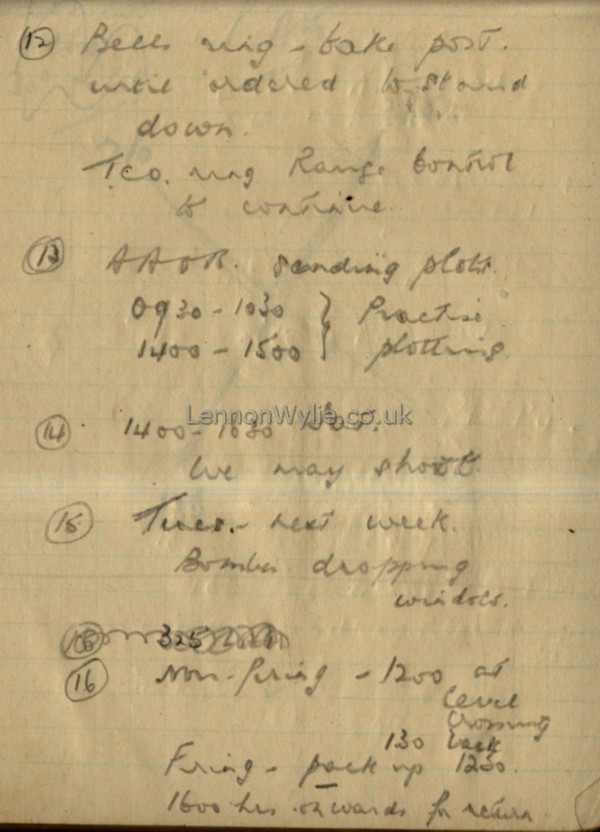 (12) Bells ring - take post.
until ordered to stand
down.
T.C.O. ring Range Control
to continue.
(13) A A O R. sending plots.
0930 - 1030 } Practise
1400 - 1500 } plotting
LennonWylie.co.uk
(14) 1400 - 1630
We may shoot
(15) Tues. - next week.
Bomber dropping
window.
325
(16) Non-firing - 1200 at
Level
Crossing
130 back
Firing - pack up 1230.
1600 hrs onwards for return